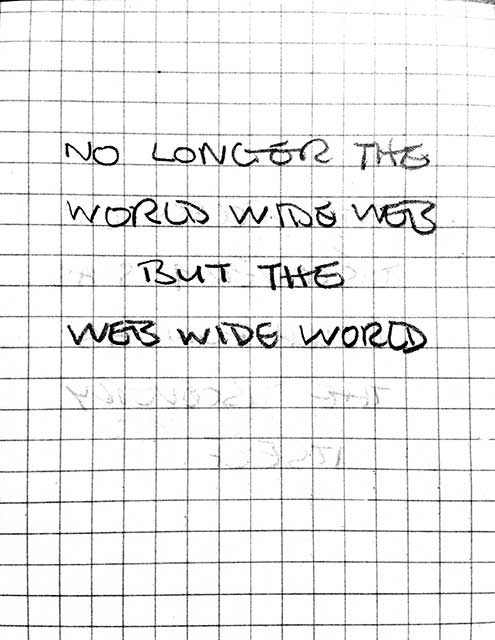 NO LONGER THE
WORLD WIDE WEB
BUT THE
WEB WIDE WORLD